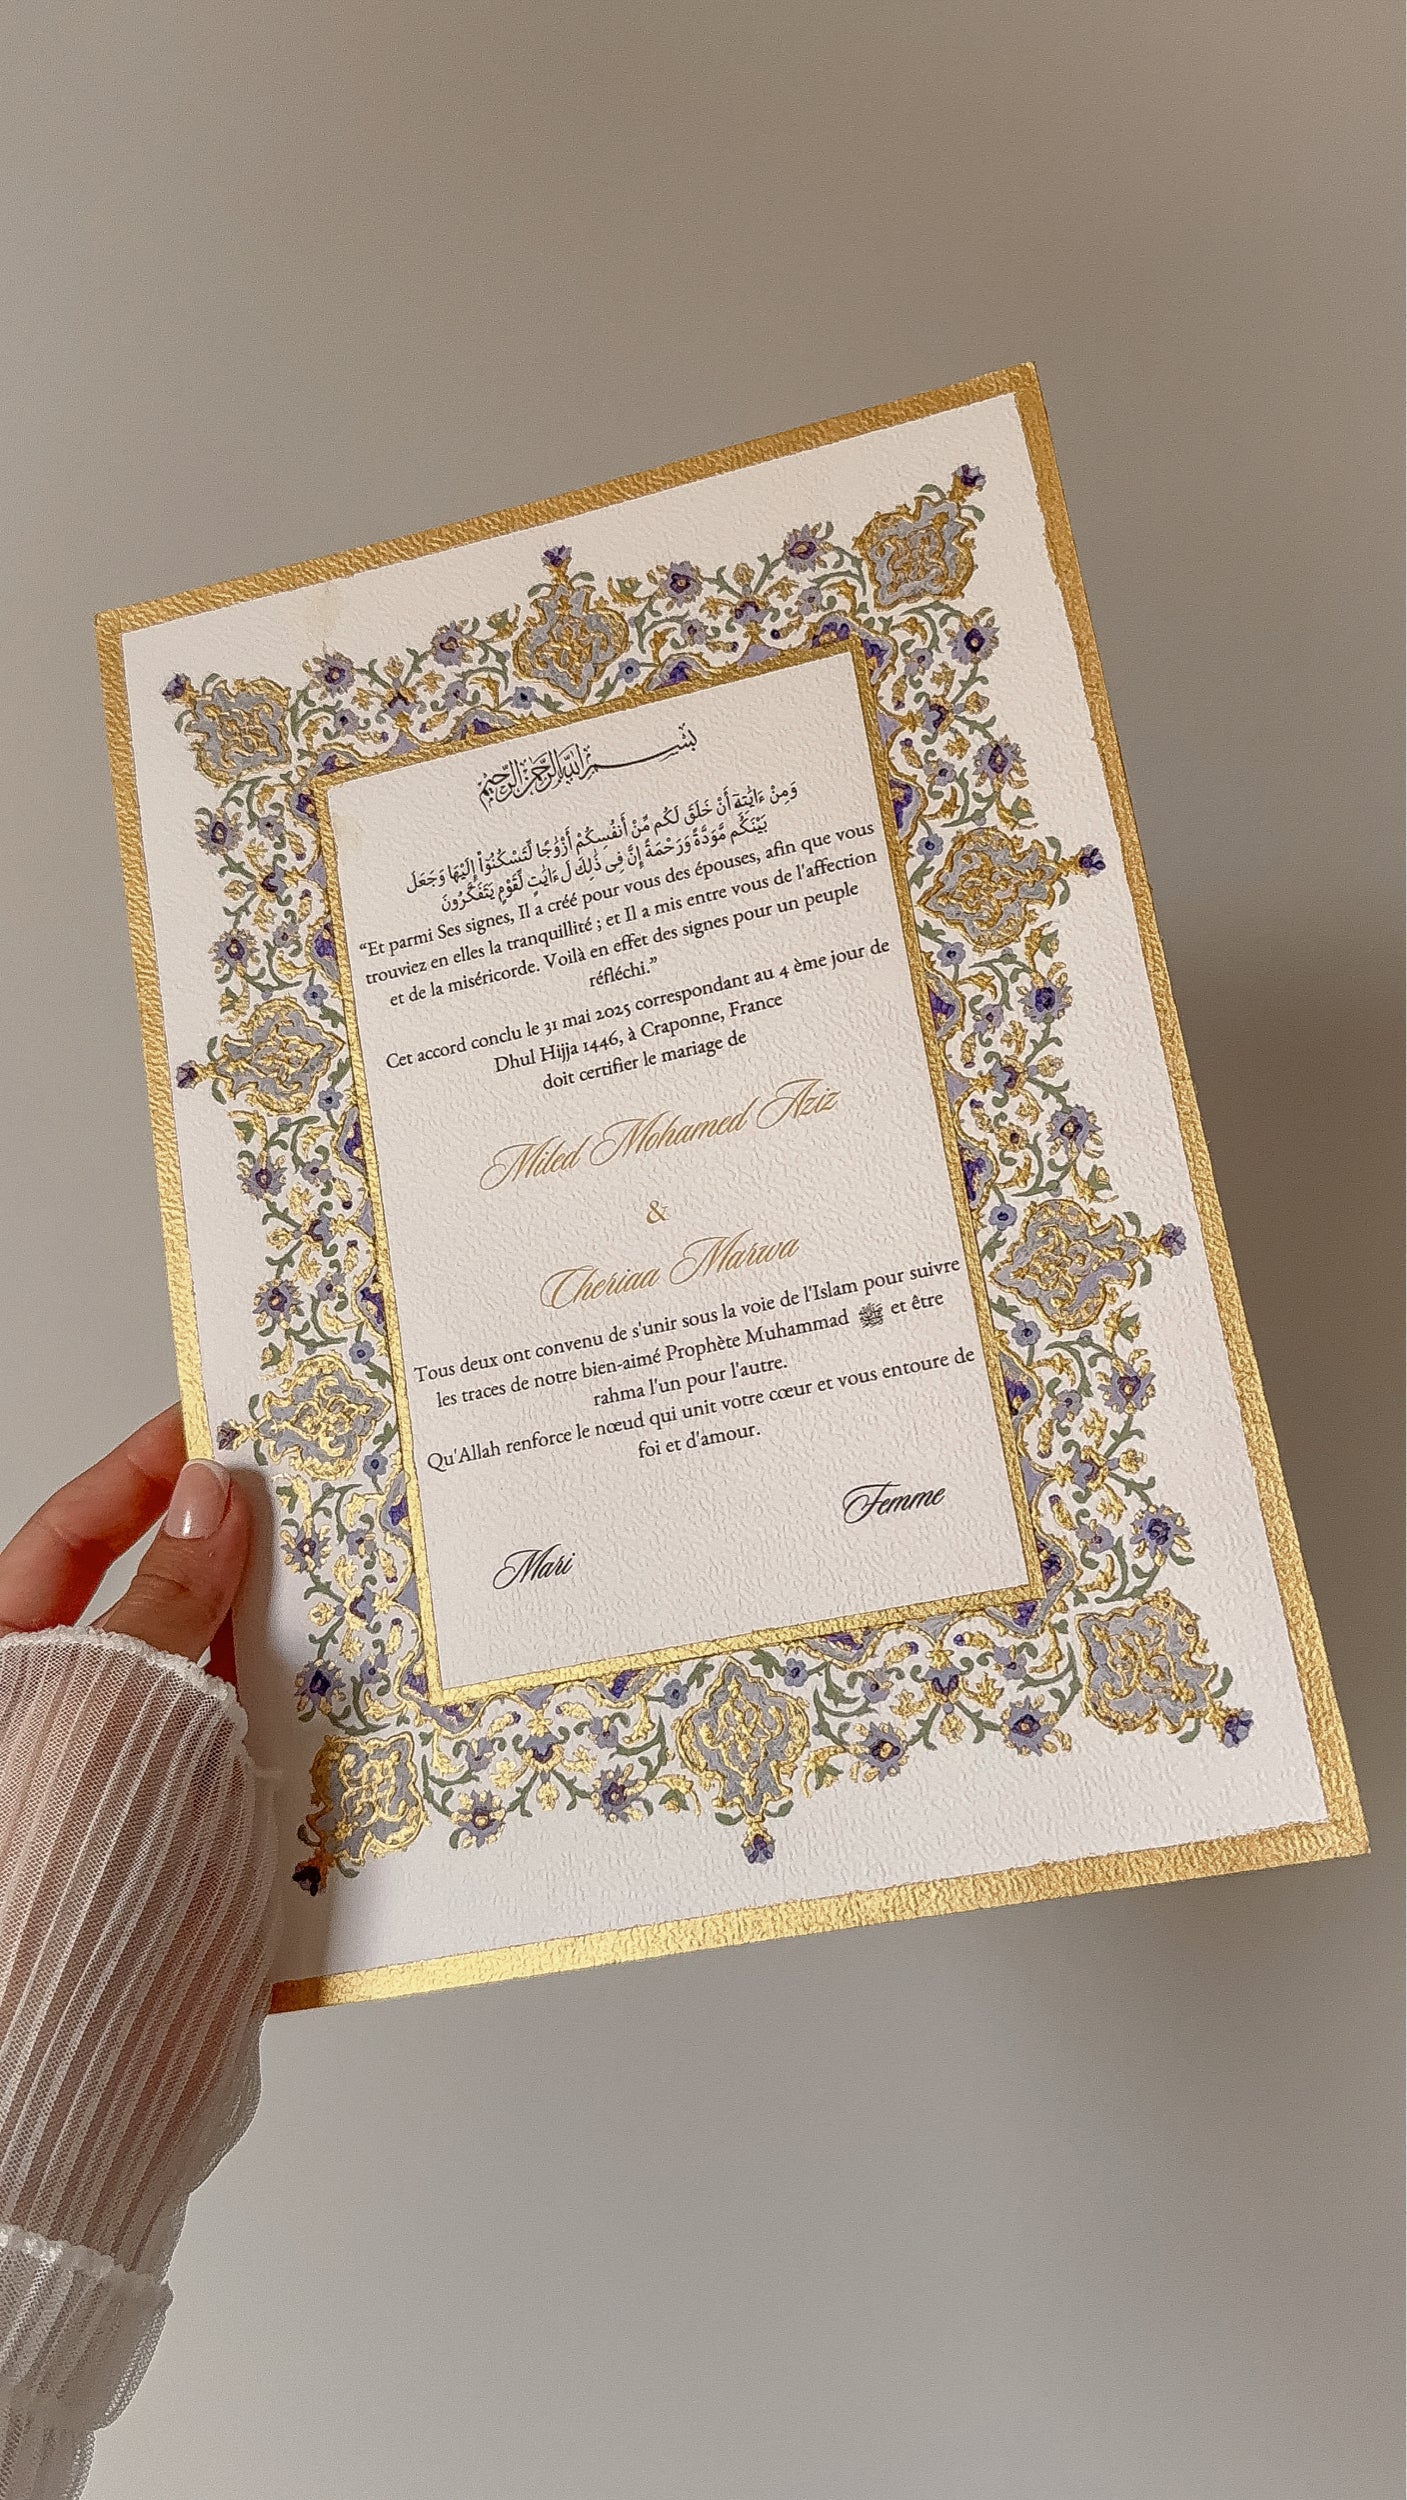 بسم الله الرحمن الرحيم
وَمِنْ ءَايَٰتِهِۦٓ أَنْ خَلَقَ لَكُم مِّنْ أَنفُسِكُمْ أَزْوَٰجًا لِّتَسْكُنُوٓا۟ إِلَيْهَا وَجَعَلَ
بَيْنَكُم مَّوَدَّةً وَرَحْمَةً إِنَّ فِى ذَٰلِكَ لَـَٔايَٰتٍ لِّقَوْمٍ يَتَفَكَّرُونَ
“Et parmi Ses signes, Il a créé pour vous des épouses, afin que vous
trouviez en elles la tranquillité ; et Il a mis entre vous de l'affection
et de la miséricorde. Voilà en effet des signes pour un peuple
réfléchi.”
Cet accord conclu le 31 mai 2025 correspondant au 4 ème jour de
Dhul Hijja 1446, à Craponne, France
doit certifier le mariage de
Miled Mohamed Aziz
&
Cheriaa Marwa
Tous deux ont convenu de s'unir sous la voie de l'Islam pour suivre
les traces de notre bien-aimé Prophète Muhammad ﷺ et être
rahma l'un pour l'autre.
Qu'Allah renforce le nœud qui unit votre cœur et vous entoure de
foi et d'amour.
Mari Femme